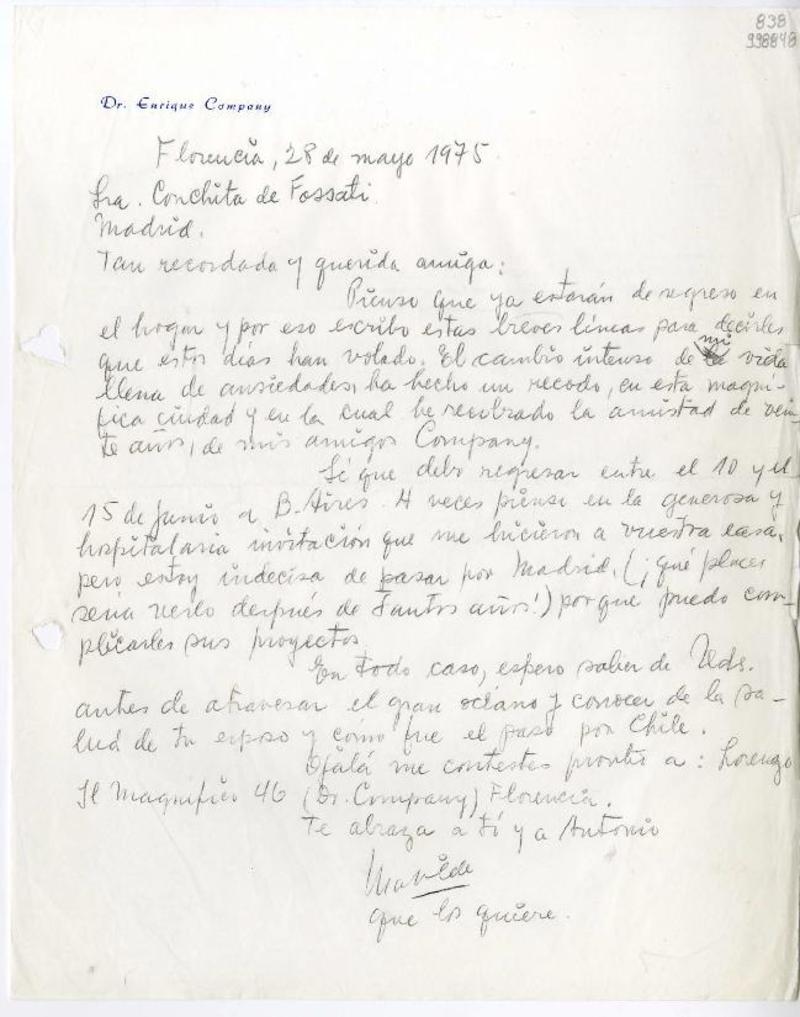 838
998848
Dr. Enrique Company
Florencia, 28 de mayo 1975
Sra. Conchita de Fossati.
Madrid.
Tan recordada y querida amiga:
Pienso que ya estarán de regreso en
el hogar y por eso escribo estas breves líneas para decirles
que estos días han volado. El cambio intenso de mi vida
llena de ansiedades, ha hecho un recodo, en esta magní-
fica ciudad y en la cual he recobrado la amistad de vein-
te años, de mis amigos Company.
Sé que debo regresar entre el 10 y el
15 de Junio a B. Aires. 4 veces pienso en la generosa y
hospitalaria invitación que me hicieron a vuestra casa,
pero estoy indecisa de pasar por Madrid. (¡qué placer
sería verlo después de tantos años!) porque puedo com-
plicarles sus proyectos.
En todo caso, espero saber de Uds.
antes de atravesar el gran océano y conocer de la sa-
lud de tu esposo y cómo fue el paso por Chile.
Ojalá me contestes pronto a: Lorenzo
Il Magnifico 46 (Dr. Company) Florencia.
Te abraza a tí y a Antonio
Matilde
que los quiere.